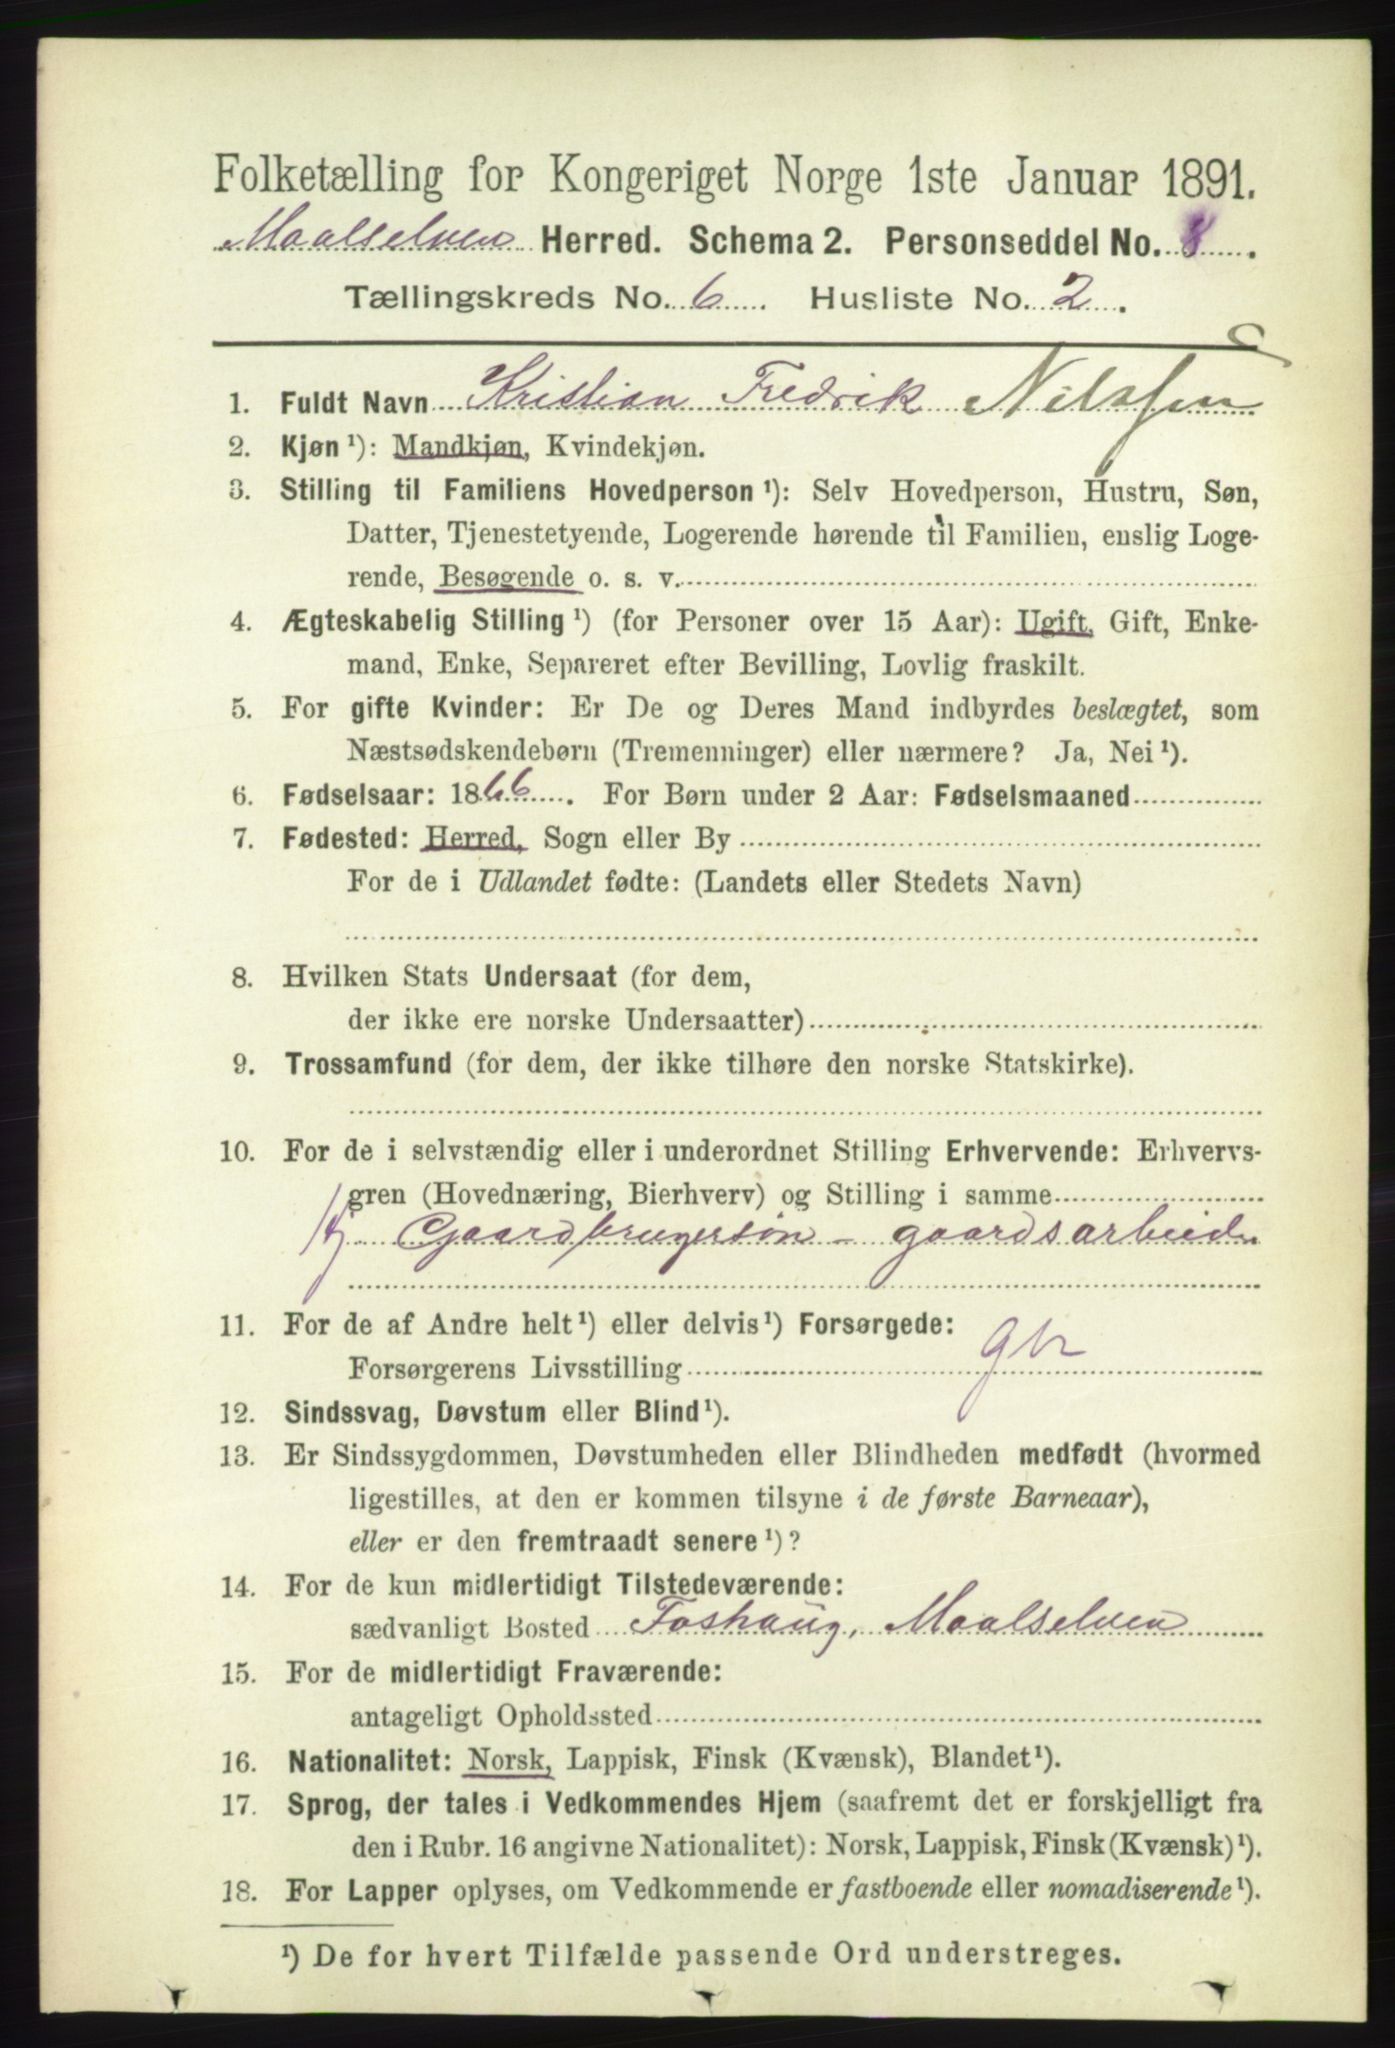 Folketælling for Kongeriget Norge 1ste Januar 1891.
Maalselven Herred. Schema 2. Personseddel No. 8.
Tællingskreds No. 6. Husliste No. 2.
1. Fuldt Navn Kristian Fredrik Nilssen
2. Kjøn ¹): Mandkjøn, Kvindekjøn.
3. Stilling til Familiens Hovedperson ¹): Selv Hovedperson, Hustru, Søn,
Datter, Tjenestetyende, Logerende hørende til Familien, enslig Loge-
rende, Besøgende o. s. v.
4. Ægteskabelig Stilling ¹) (for Personer over 15 Aar): Ugift, Gift, Enke-
mand, Enke, Separeret efter Bevilling, Lovlig fraskilt.
5. For gifte Kvinder: Er De og Deres Mand indbyrdes beslægtet, som
Næstsødskendebørn (Tremenninger) eller nærmere? Ja, Nei ¹).
6. Fødselsaar: 1866. For Børn under 2 Aar: Fødselsmaaned
7. Fødested: Herred, Sogn eller By
For de i Udlandet fødte: (Landets eller Stedets Navn)
8. Hvilken Stats Undersaat (for dem,
der ikke ere norske Undersaatter)
9. Trossamfund (for dem, der ikke tilhøre den norske Statskirke).
10. For de i selvstændig eller i underordnet Stilling Erhvervende: Erhvervs-
gren (Hovednæring, Bierhverv) og Stilling i samme
Gaardbrugersøn - gaardsarbeide
11. For de af Andre helt ¹) eller delvis ¹) Forsørgede:
gbr
Forsørgerens Livsstilling
12. Sindssvag, Døvstum eller Blind ¹).
13. Er Sindssygdommen, Døvstumheden eller Blindheden medfødt (hvormed
ligestilles, at den er kommen tilsyne i de første Barneaar),
eller er den fremtraadt senere ¹)?
14. For de kun midlertidigt Tilstedeværende:
sædvanligt Bosted Foshaug, Maalselven
15. For de midlertidigt Fraværende:
antageligt Opholdssted
16. Nationalitet: Norsk, Lappisk, Finsk (Kvænsk), Blandet ¹).
17. Sprog, der tales i Vedkommendes Hjem (saafremt det er forskjelligt fra
den i Rubr. 16 angivne Nationalitet): Norsk, Lappisk, Finsk (Kvænsk) ¹).
18. For Lapper oplyses, om Vedkommende er fastboende eller nomadiserende ¹).
¹) De for hvert Tilfælde passende Ord understreges.